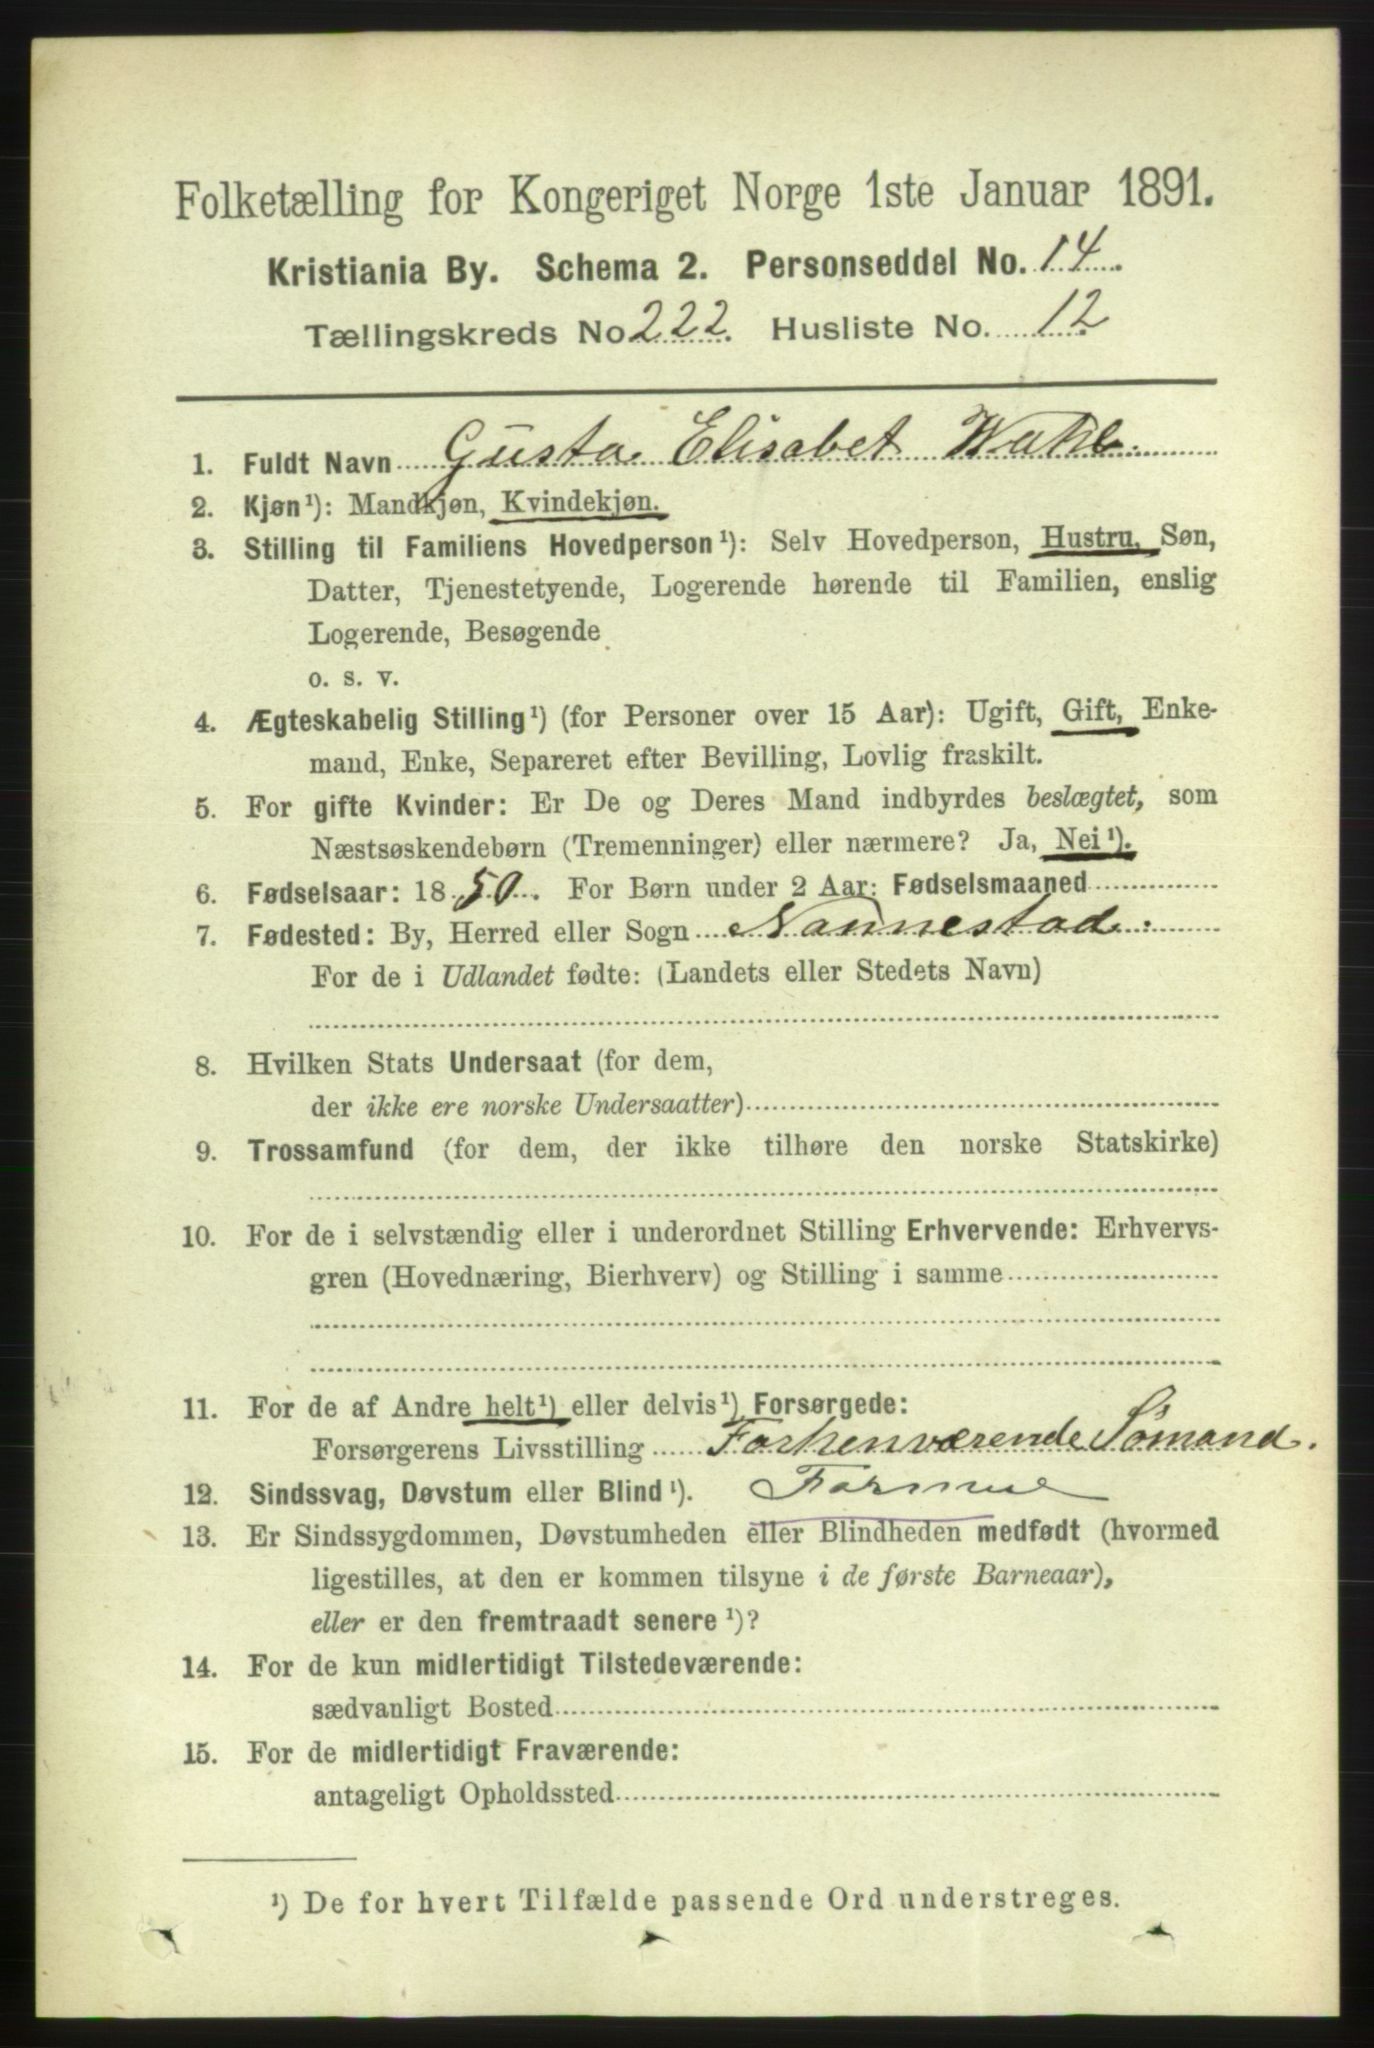 Folketælling for Kongeriget Norge 1ste Januar 1891.
Kristiania By. Schema 2. Personseddel No. 14
Tællingskreds No 222. Husliste No. 12
1. Fuldt Navn Gusta Elisabet Wahl.
2. Kjøn¹): Mandkjøn, Kvindekjøn.
3. Stilling til Familiens Hovedperson¹): Selv Hovedperson, Hustru, Søn,
Datter, Tjenestetyende, Logerende hørende til Familien, enslig
Logerende, Besøgende
o. s. v.
4. Ægteskabelig Stilling¹) (for Personer over 15 Aar): Ugift, Gift, Enke-
mand, Enke, Separeret efter Bevilling, Lovlig fraskilt.
5. For gifte Kvinder: Er De og Deres Mand indbyrdes beslægtet, som
Næstsøskendebørn (Tremenninger) eller nærmere? Ja, Nei¹).
6. Fødselsaar: 1850. For Børn under 2 Aar: Fødselsmaaned
7. Fødested: By, Herred eller Sogn Nannestad.
For de i Udlandet fødte: (Landets eller Stedets Navn)
8. Hvilken Stats Undersaat (for dem,
der ikke ere norske Undersaatter)
9. Trossamfund (for dem, der ikke tilhøre den norske Statskirke)
10. For de i selvstændig eller i underordnet Stilling Erhvervende: Erhvervs-
gren (Hovednæring, Bierhverv) og Stilling i samme
11. For de af Andre helt¹) eller delvis¹) Forsørgede:
Forsørgerens Livsstilling Forhenværende Sömand.
12. Sindssvag, Døvstum eller Blind¹). Formue
13. Er Sindssygdommen, Døvstumheden eller Blindheden medfødt (hvormed
ligestilles, at den er kommen tilsyne i de første Barneaar),
eller er den fremtraadt senere¹)?
14. For de kun midlertidigt Tilstedeværende:
sædvanligt Bosted
15. For de midlertidigt Fraværende:
antageligt Opholdssted
¹) De for hvert Tilfælde passende Ord understreges.